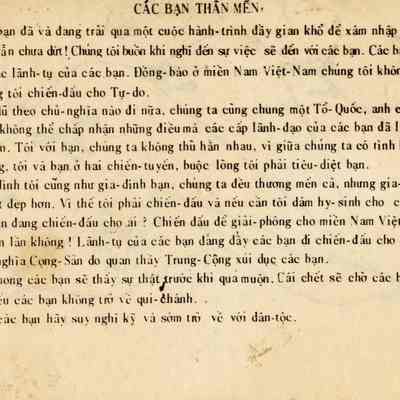 CÁC BẠN THÂN MẾN,
bạn đã và đang trải qua một cuộc hành-trình đầy gian khổ để xâm nhập
ẫn chưa dứt! Chúng tôi buồn khi nghĩ đến sự việc sẽ đến với các bạn. Các bạ
ác lãnh-tụ của các bạn. Đồng-bào ở miền Nam Việt-Nam chúng tôi khôn
g tôi chiến-đấu cho Tự-do.
ù theo chủ-nghĩa nào đi nữa, chúng ta cùng chung một Tổ-Quốc, anh e
không thể chấp nhận những điều mà các cấp lãnh-đạo của các bạn đã l
n. Tôi với bạn, chúng ta không thù hằn nhau, vì giữa chúng ta có tình h
g, tôi và bạn ở hai chiến-tuyến, buộc lòng tôi phải tiêu-diệt bạn.
đình tôi cũng như gia-đình bạn, chúng ta đều thương mến cả, nhưng gia-
t đẹp hơn. Vì thế tôi phải chiến-đấu và nếu cần tôi dám hy-sinh cho c
n đang chiến-đấu cho ai ? Chiến đấu để giải-phóng cho miền Nam Việt
n lần không ! Lãnh-tụ của các bạn đang đẩy các bạn đi chiến-đấu cho
nghĩa Cộng-Sản do quan thầy Trung-Cộng xúi dục các bạn.
mong các bạn sẽ thấy sự thật trước khi quá muộn. Cái chết sẽ chờ các b
ếu các bạn không trở về qui-chánh. .
các bạn hãy suy nghĩ kỹ và sớm trở về với dân-tộc.